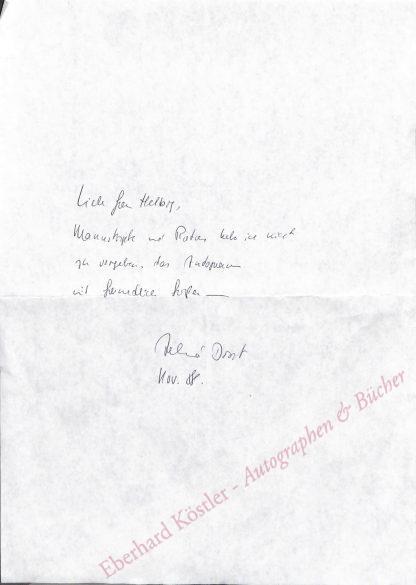 Liebe Frau Helbig,
Manuskripte und Photos habe ich nicht
zu vergeben, das Autogramm
mit freundlichem
Dorst
Nov. 08.
Eberhard Köstler - Autographen & Bücher